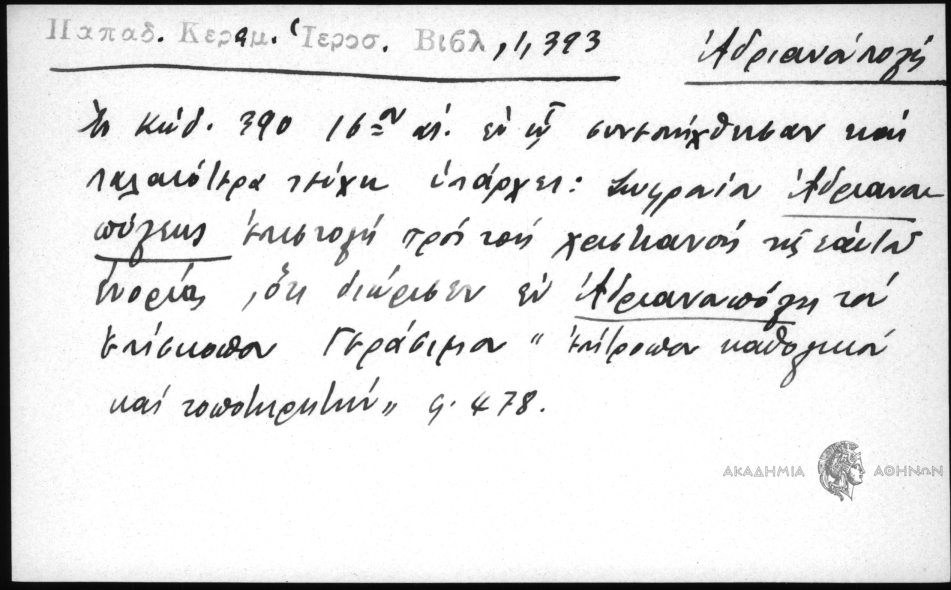 Παπαδ. Κεραμ. Ἱεροσ. Βιβλ, 1, 393
Ἀδριανούπολη
Ἐν κώδ. 390 16ου αἰ. ἐν ᾧ συνεπτύχθησαν καὶ
παλαιότερα τεύχη ὑπάρχει: Ἀδριανου-
πόλεως ἐπιστολὴ πρὸς τοὺς χριστιανοὺς τῆς ἑαυτοῦ
ἐνορίας, ὅτι διώρισεν ἐν Ἀδριανουπόλει τὸν
ἐπίσκοπον Γεράσιμον "ἐπίτροπον καθολικὸν
καὶ τοποτηρητὴν" φ. 478.
ΑΚΑΔΗΜΙΑ ΑΘΗΝΩΝ